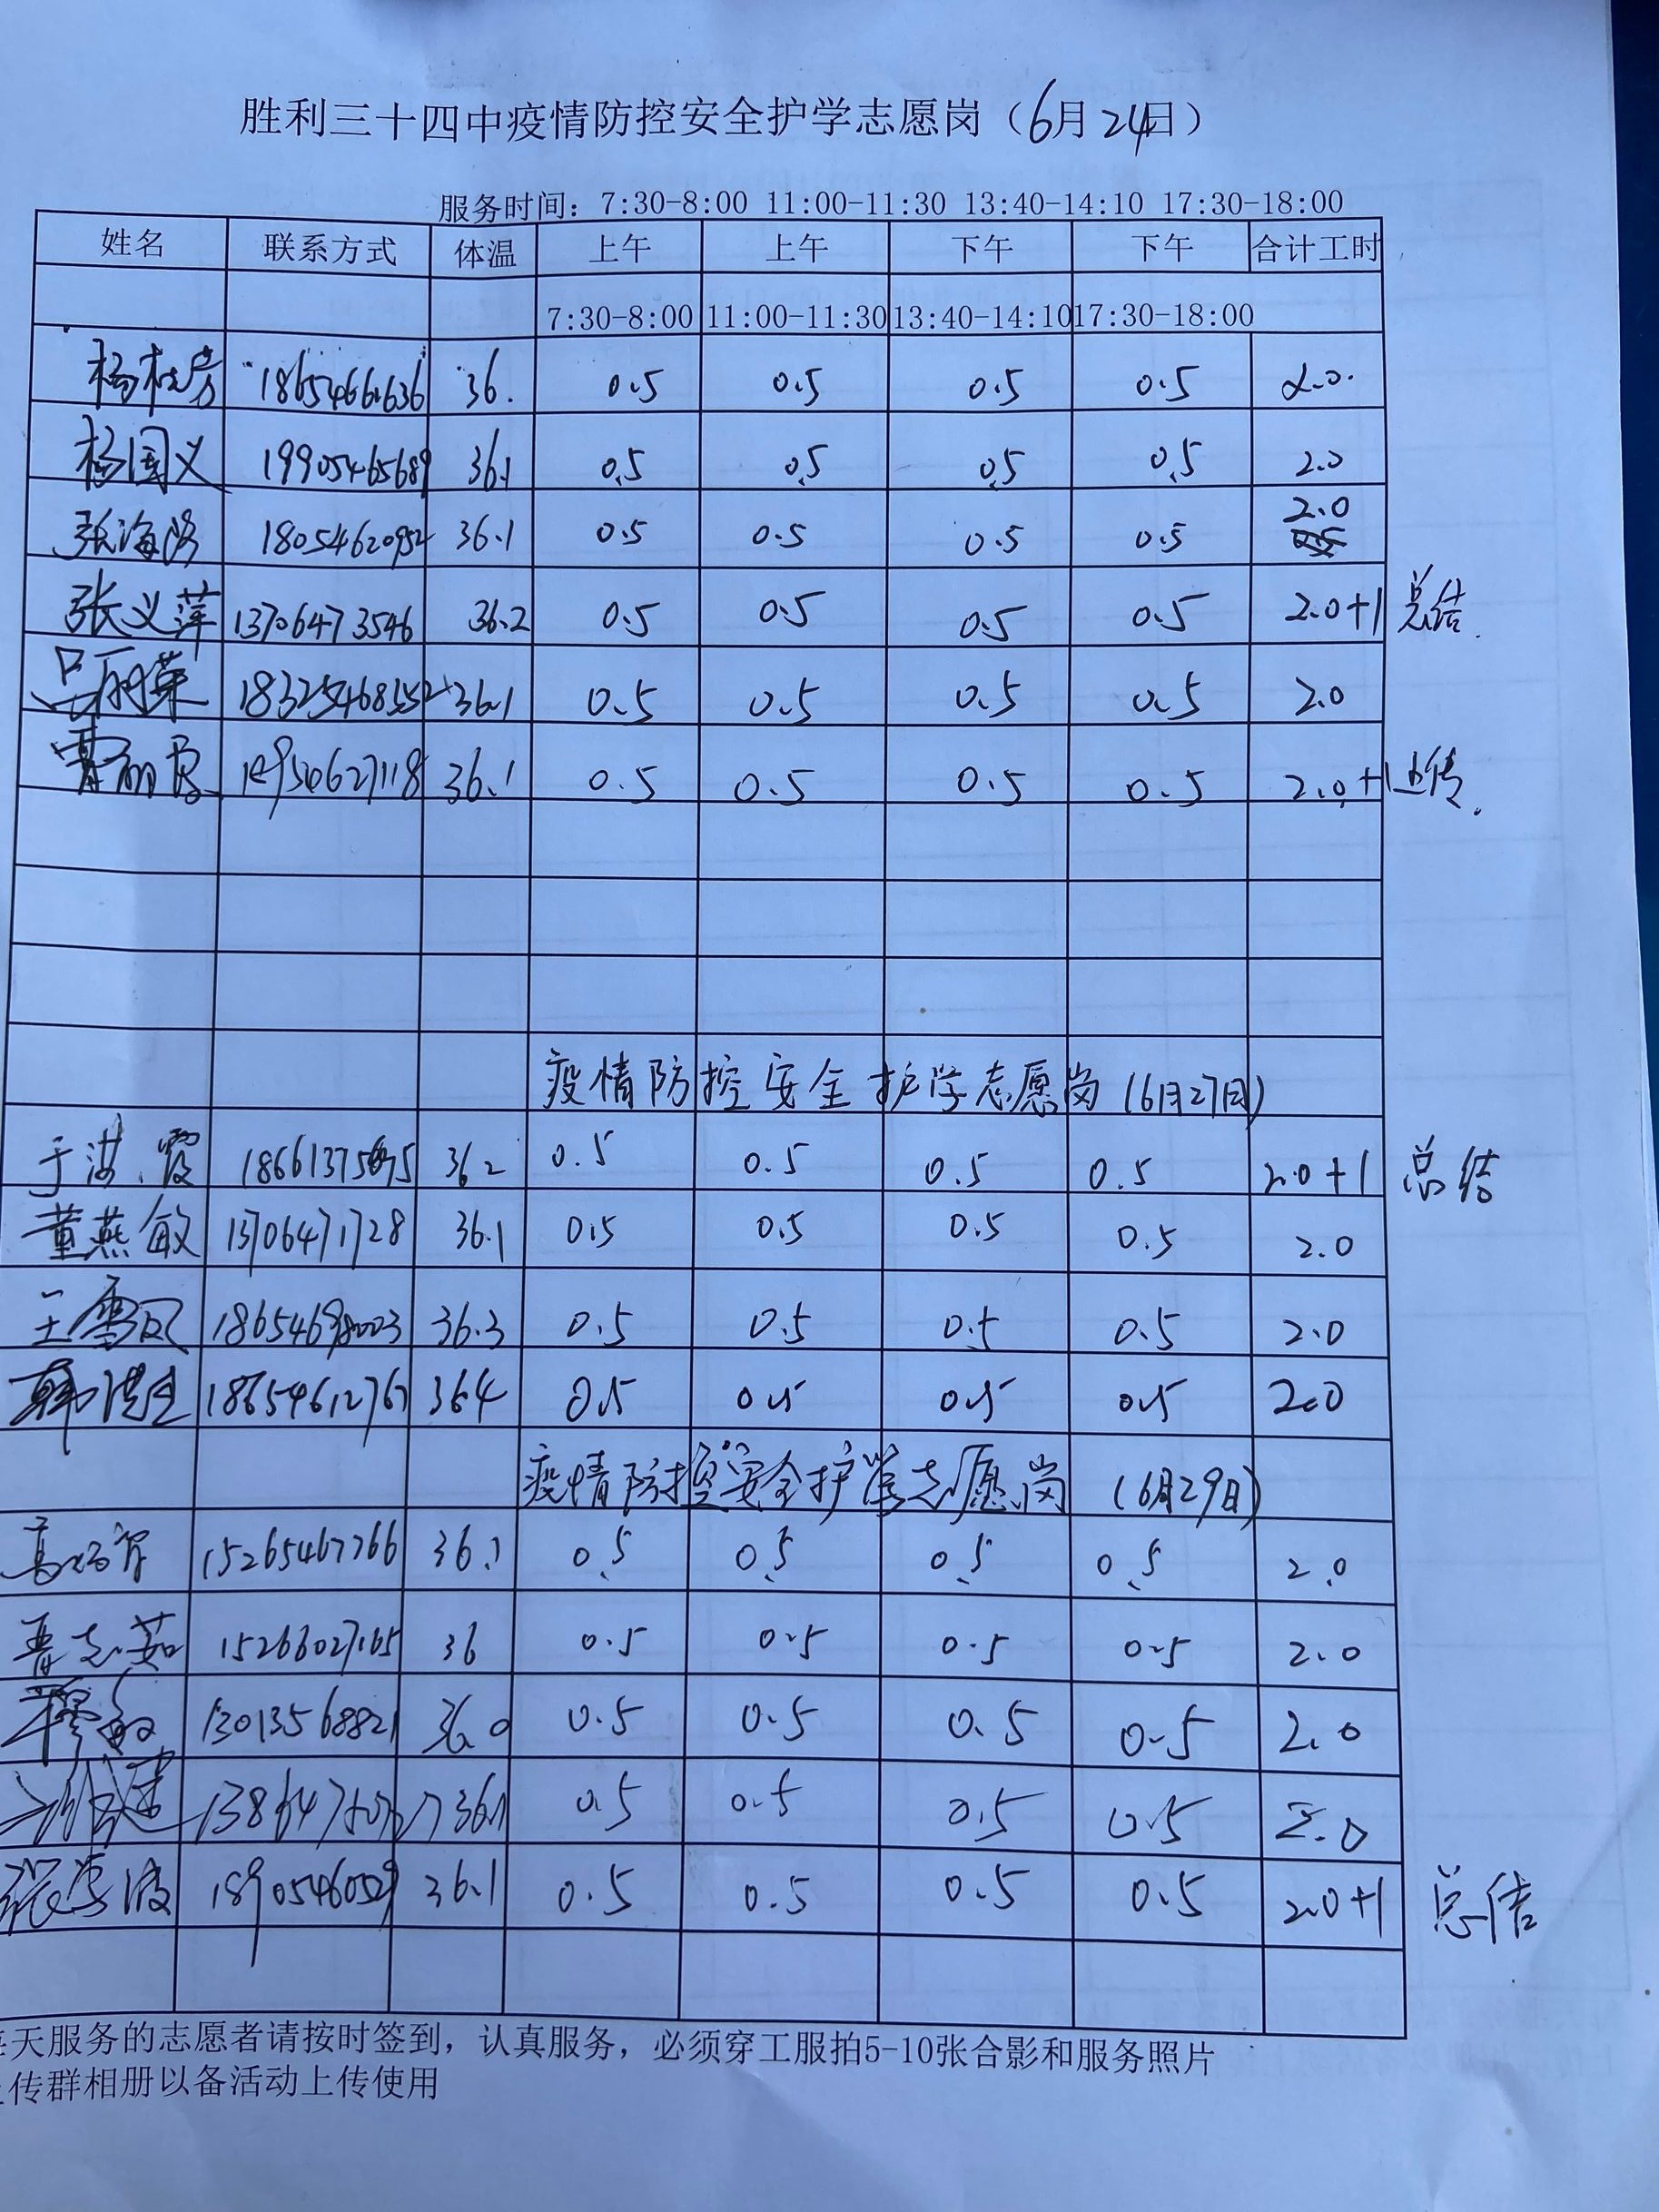 胜利三十四中疫情防控安全护学志愿岗（6月24日）
服务时间：7:30-8:00 11:00-11:30 13:40-14:10 17:30-18:00
姓名 联系方式 体温 上午 上午 下午 下午 合计工时
7:30-8:00 11:00-11:30 13:40-14:10 17:30-18:00
杨 18654661636 36. 0.5 0.5 0.5 0.5 2.0.
杨国义 19905465689 36.1 0.5 0.5 0.5 0.5 2.0
张海 18054620952 36.1 0.5 0.5 0.5 0.5 2.0
张义萍 13706473546 36.2 0.5 0.5 0.5 0.5 2.0+1 总结.
吕丽荣 18325468552 36.1 0.5 0.5 0.5 0.5 2.0
36.1 0.5 0.5 0.5 0.5 2.0+1 上传.
疫情防控安全护学志愿岗（6月27日）
于洪霞 36.2 0.5 0.5 0.5 0.5 2.0+1 总结
董燕敏 13706471728 36.1 0.5 0.5 0.5 0.5 2.0
王雪风 18654698003 36.3 0.5 0.5 0.5 0.5 2.0
韩 18654612767 364 0.5 0.5 0.5 0.5 2.0
疫情防控安全护学志愿岗（6月29日）
高 15265467766 36.1 0.5 0.5 0.5 0.5 2.0
晋志茹 15266027165 36 0.5 0.5 0.5 0.5 2.0
穆敏 13013568821 36.0 0.5 0.5 0.5 0.5 2.0
36.1 0.5 0.5 0.5 0.5 2.0
张学波 18905460529 36.1 0.5 0.5 0.5 0.5 2.0+1 总结
每天服务的志愿者请按时签到，认真服务，必须穿工服拍5-10张合影和服务照片
上传群相册以备活动上传使用